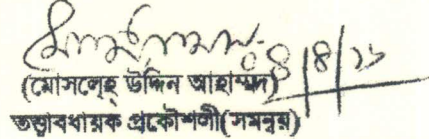 ০৪/৪/১৯
(মোসলেহ্ উদ্দিন আহাম্মদ)
তত্ত্বাবধায়ক প্রকৌশলী(সমন্বয়)